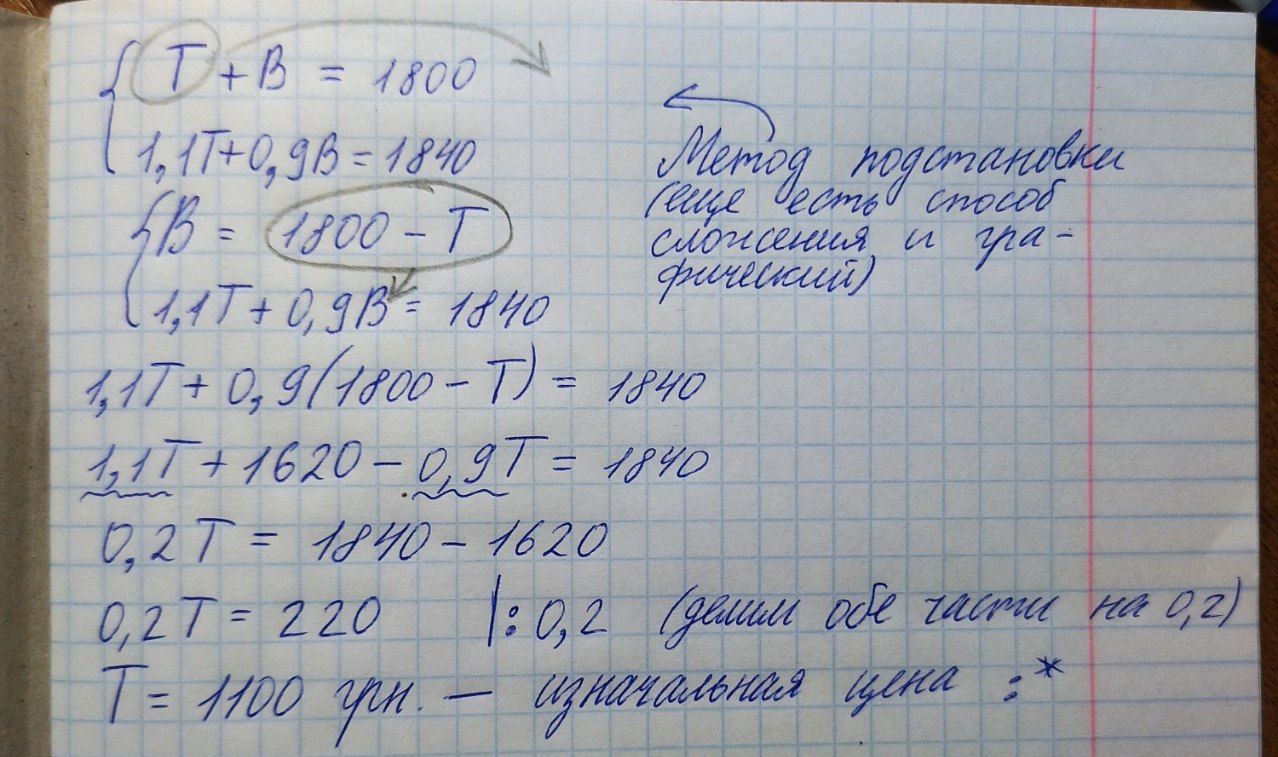 Т + В = 1800
1,1Т+0,9В = 1840
Метод подстановки
(еще есть способ
сложения и гра-
фический)
В = 1800 - Т
1,1Т + 0,9В = 1840
1,1Т + 0,9(1800 - Т) = 1840
1,1Т + 1620 - 0,9Т = 1840
0,2Т = 1840 - 1620
0,2Т = 220 |:0,2 (делим обе части на 0,2)
Т = 1100 грн. — изначальная цена :*